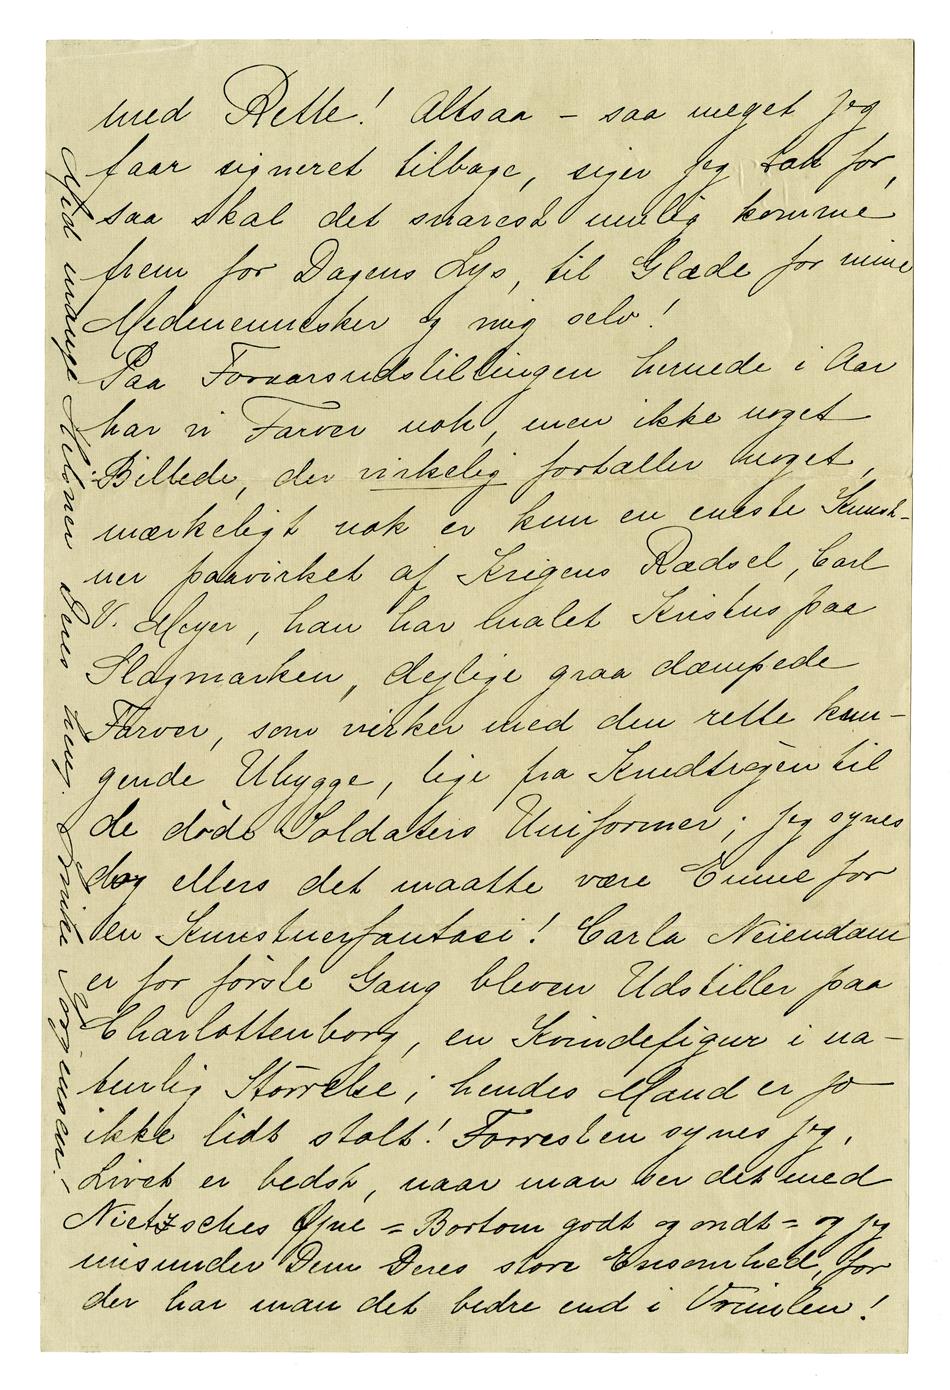 med Rette! Altsaa - saa meget jeg
faar signeret tilbage, siger jeg tak for,
saa skal det snarest mulig komme
frem for Dagens Lys, til Glæde for mine
Medmennesker og mig selv!
Paa Foraarsudstillingen hernede i Aar
har vi Farver nok, men ikke noget
Billede, der virkelig fortæller noget,
mærkeligt nok er kun en eneste Kunst-
ner paavirket af Krigens Rædsel, Carl
V. Meyer, han har malet Kristus paa
Slagmarken, dejlige graa dæmpede
Farver, som virker med den rette
gende Uhygge, lige fra Knudtrøjen til
de døde Soldaters Uniformer; jeg synes
dog ellers det maatte være Emne for
en Kunstnerfantasi! Carla Neiendam
er for første Gang bleven Udstiller paa
Charlottenborg, en Kvindefigur i na-
turlig Størrelse; hendes Mand er jo
ikke lidt stolt! Forresten synes jeg,
Livet er bedst, naar man ser det med
Nietzsches Øjne = Bortom godt og ondt = og jeg
misunder Dem Deres store Ensomhed, for
der har man det bedre end i Vrimlen!
Med mange Hilsner Deres heng. Jørgensen. -